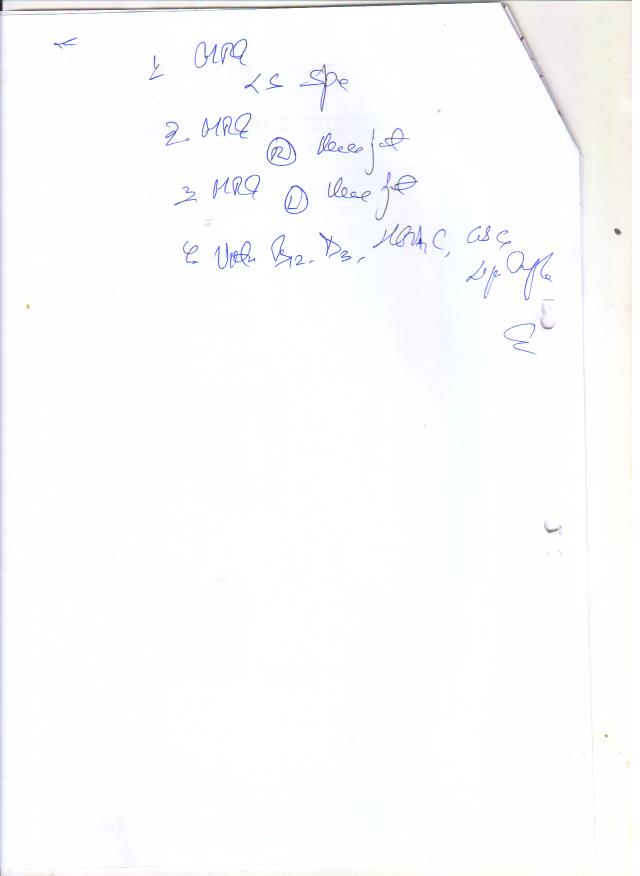 1. MRI
LS Spe
2. MRI (R) Knee jt
3. MRI (L) Knee jt
4. Vit B12, D3, HbA1C, CBC,